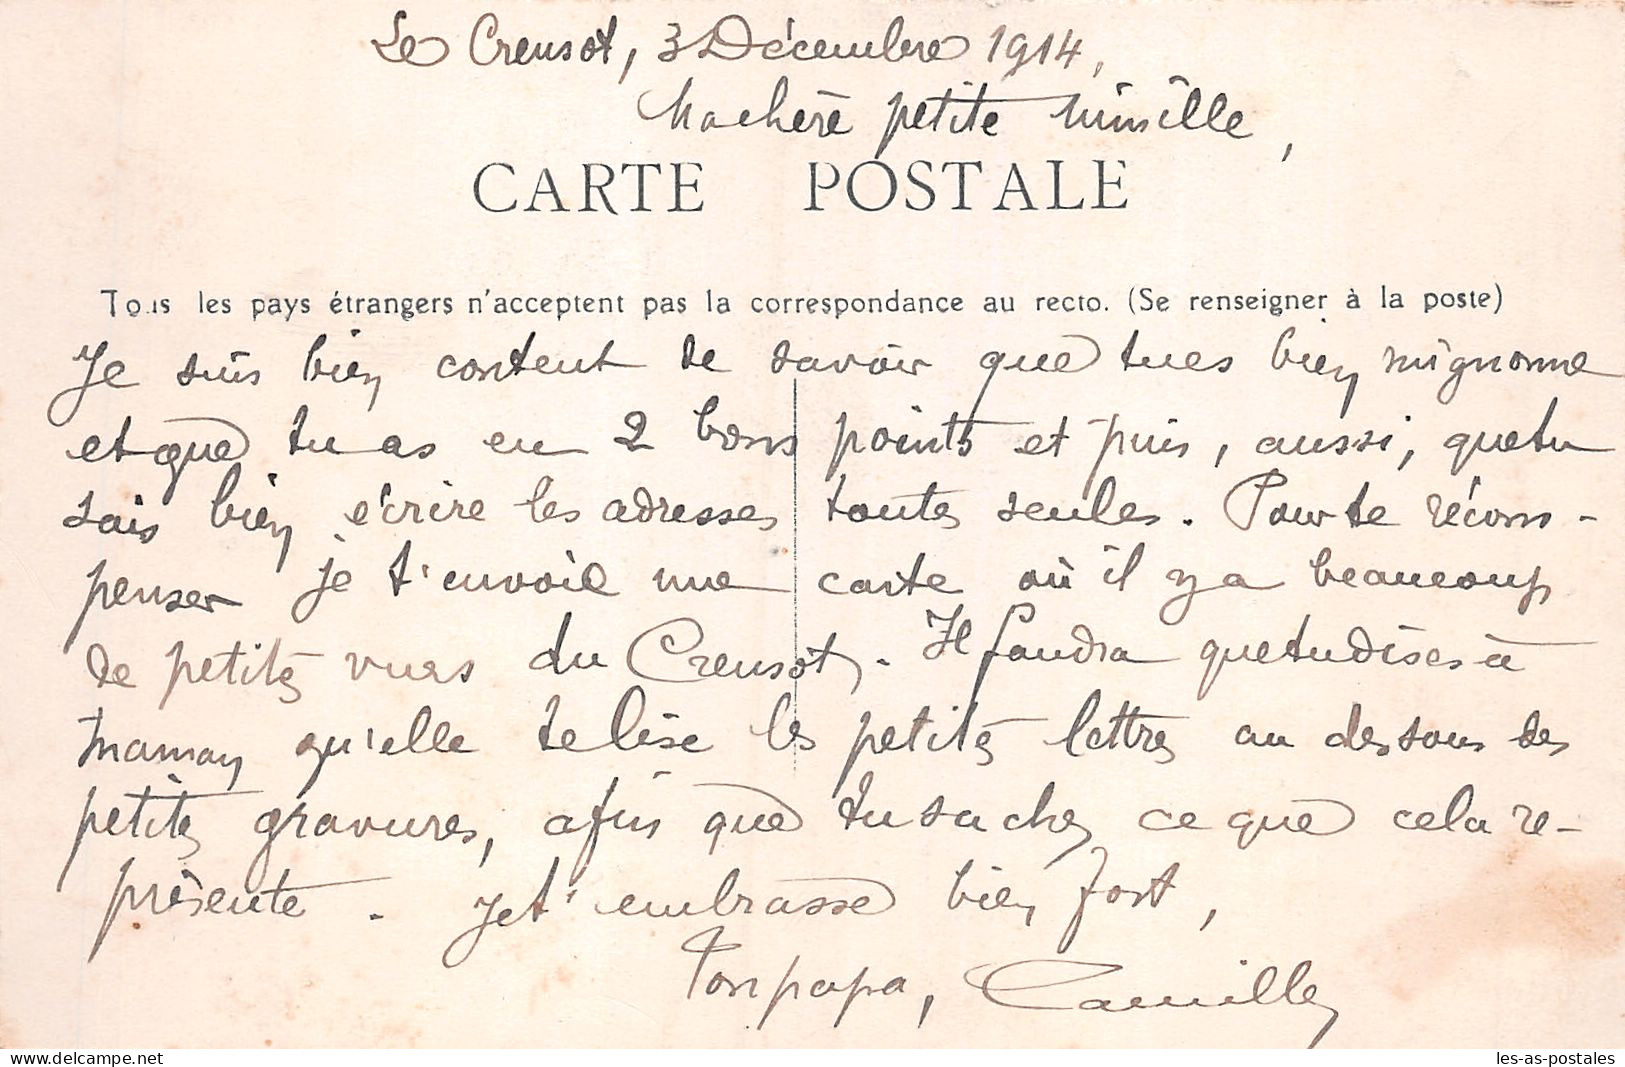 Le Creusot, 3 Décembre 1914,
Ma chère petite Mimille,
CARTE POSTALE
Tous les pays étrangers n'acceptent pas la correspondance au recto. (Se renseigner à la poste)
Je suis bien content de savoir que tu es bien mignonne
et que tu as eu 2 bons points et puis, aussi, que tu
sais bien écrire les adresses toutes seules. Pour te récom-
penser je t'envoie une carte où il y a beaucoup
de petites vues du Creusot. Il faudra que tu dises à
Maman qu'elle te lise les petites lettres au dessous des
petites gravures, afin que tu saches ce que cela re-
présente. Je t'embrasse bien fort,
Ton papa, Camille
les-as-postales